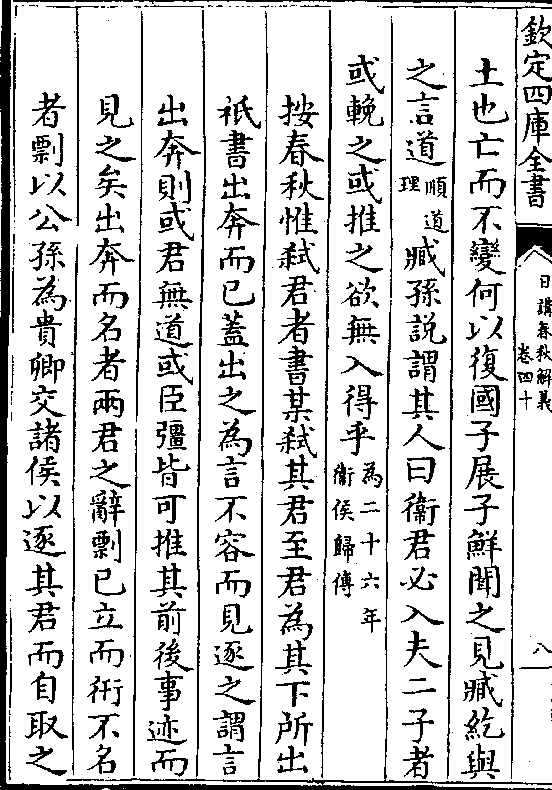 欽定四庫全書
日講春秋解義
卷四十
八
土也亡而不變何以復國子展子鮮聞之見臧紇與
之言道順道理臧孫說謂其人曰衞君必入夫二子者
或輓之或推之欲無入得乎為二十六年衞侯歸傳
按春秋惟弑君者書某弑其君至君為其下所出
祇書出奔而已蓋出之為言不容而見逐之謂言
出奔則或君無道或臣彊皆可推其前後事迹而
見之矣出奔而名者兩君之辭剽已立而衎不名
者剽以公孫為貴卿交諸侯以逐其君而自取之